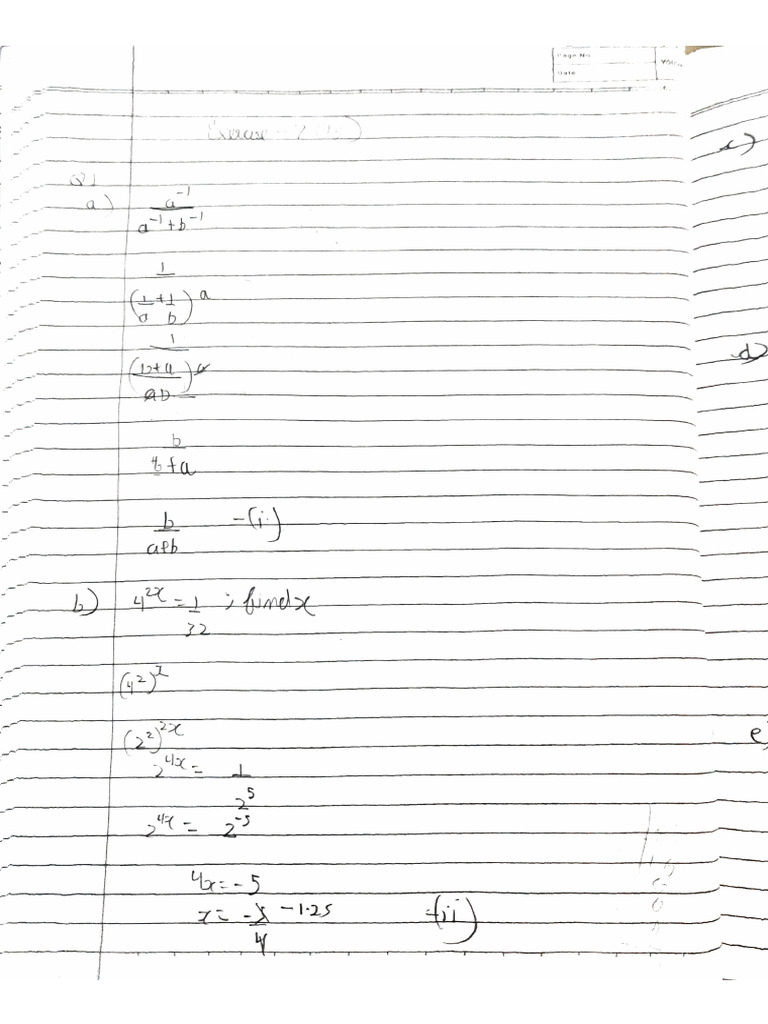 Page No.
Date
Exercise - 7
Q1
a) a⁻¹
a⁻¹+b⁻¹
1
(1/a + 1/b) a
1
(b+a / ab) a
b
b+a
b -(i)
a+b
b) 4²ˣ = 1 ; find x
32
(4²)ˣ
(2²)²ˣ
2⁴ˣ = 1
2⁵
2⁴ˣ = 2⁻⁵
4x = -5
x = -5 -1.25 -(ii)
4
c)
d)
e)